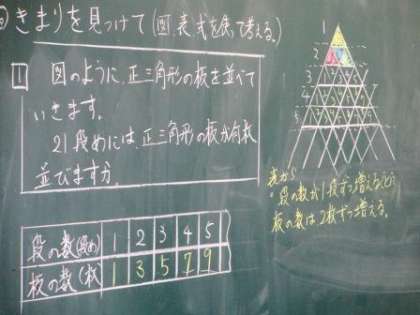 きまりを見つけて(図、表、式を使って考える。)
1 図のように、正三角形の板を並べて
いきます。
21段めには、正三角形の板が何枚
並びますか。
段の数(段め) 1 2 3 4 5
板の数(枚) 1 3 5 7 9
1
2
3
4
5
表から
・段の数が1段ずつ増えると、
板の数は2枚ずつ増える。